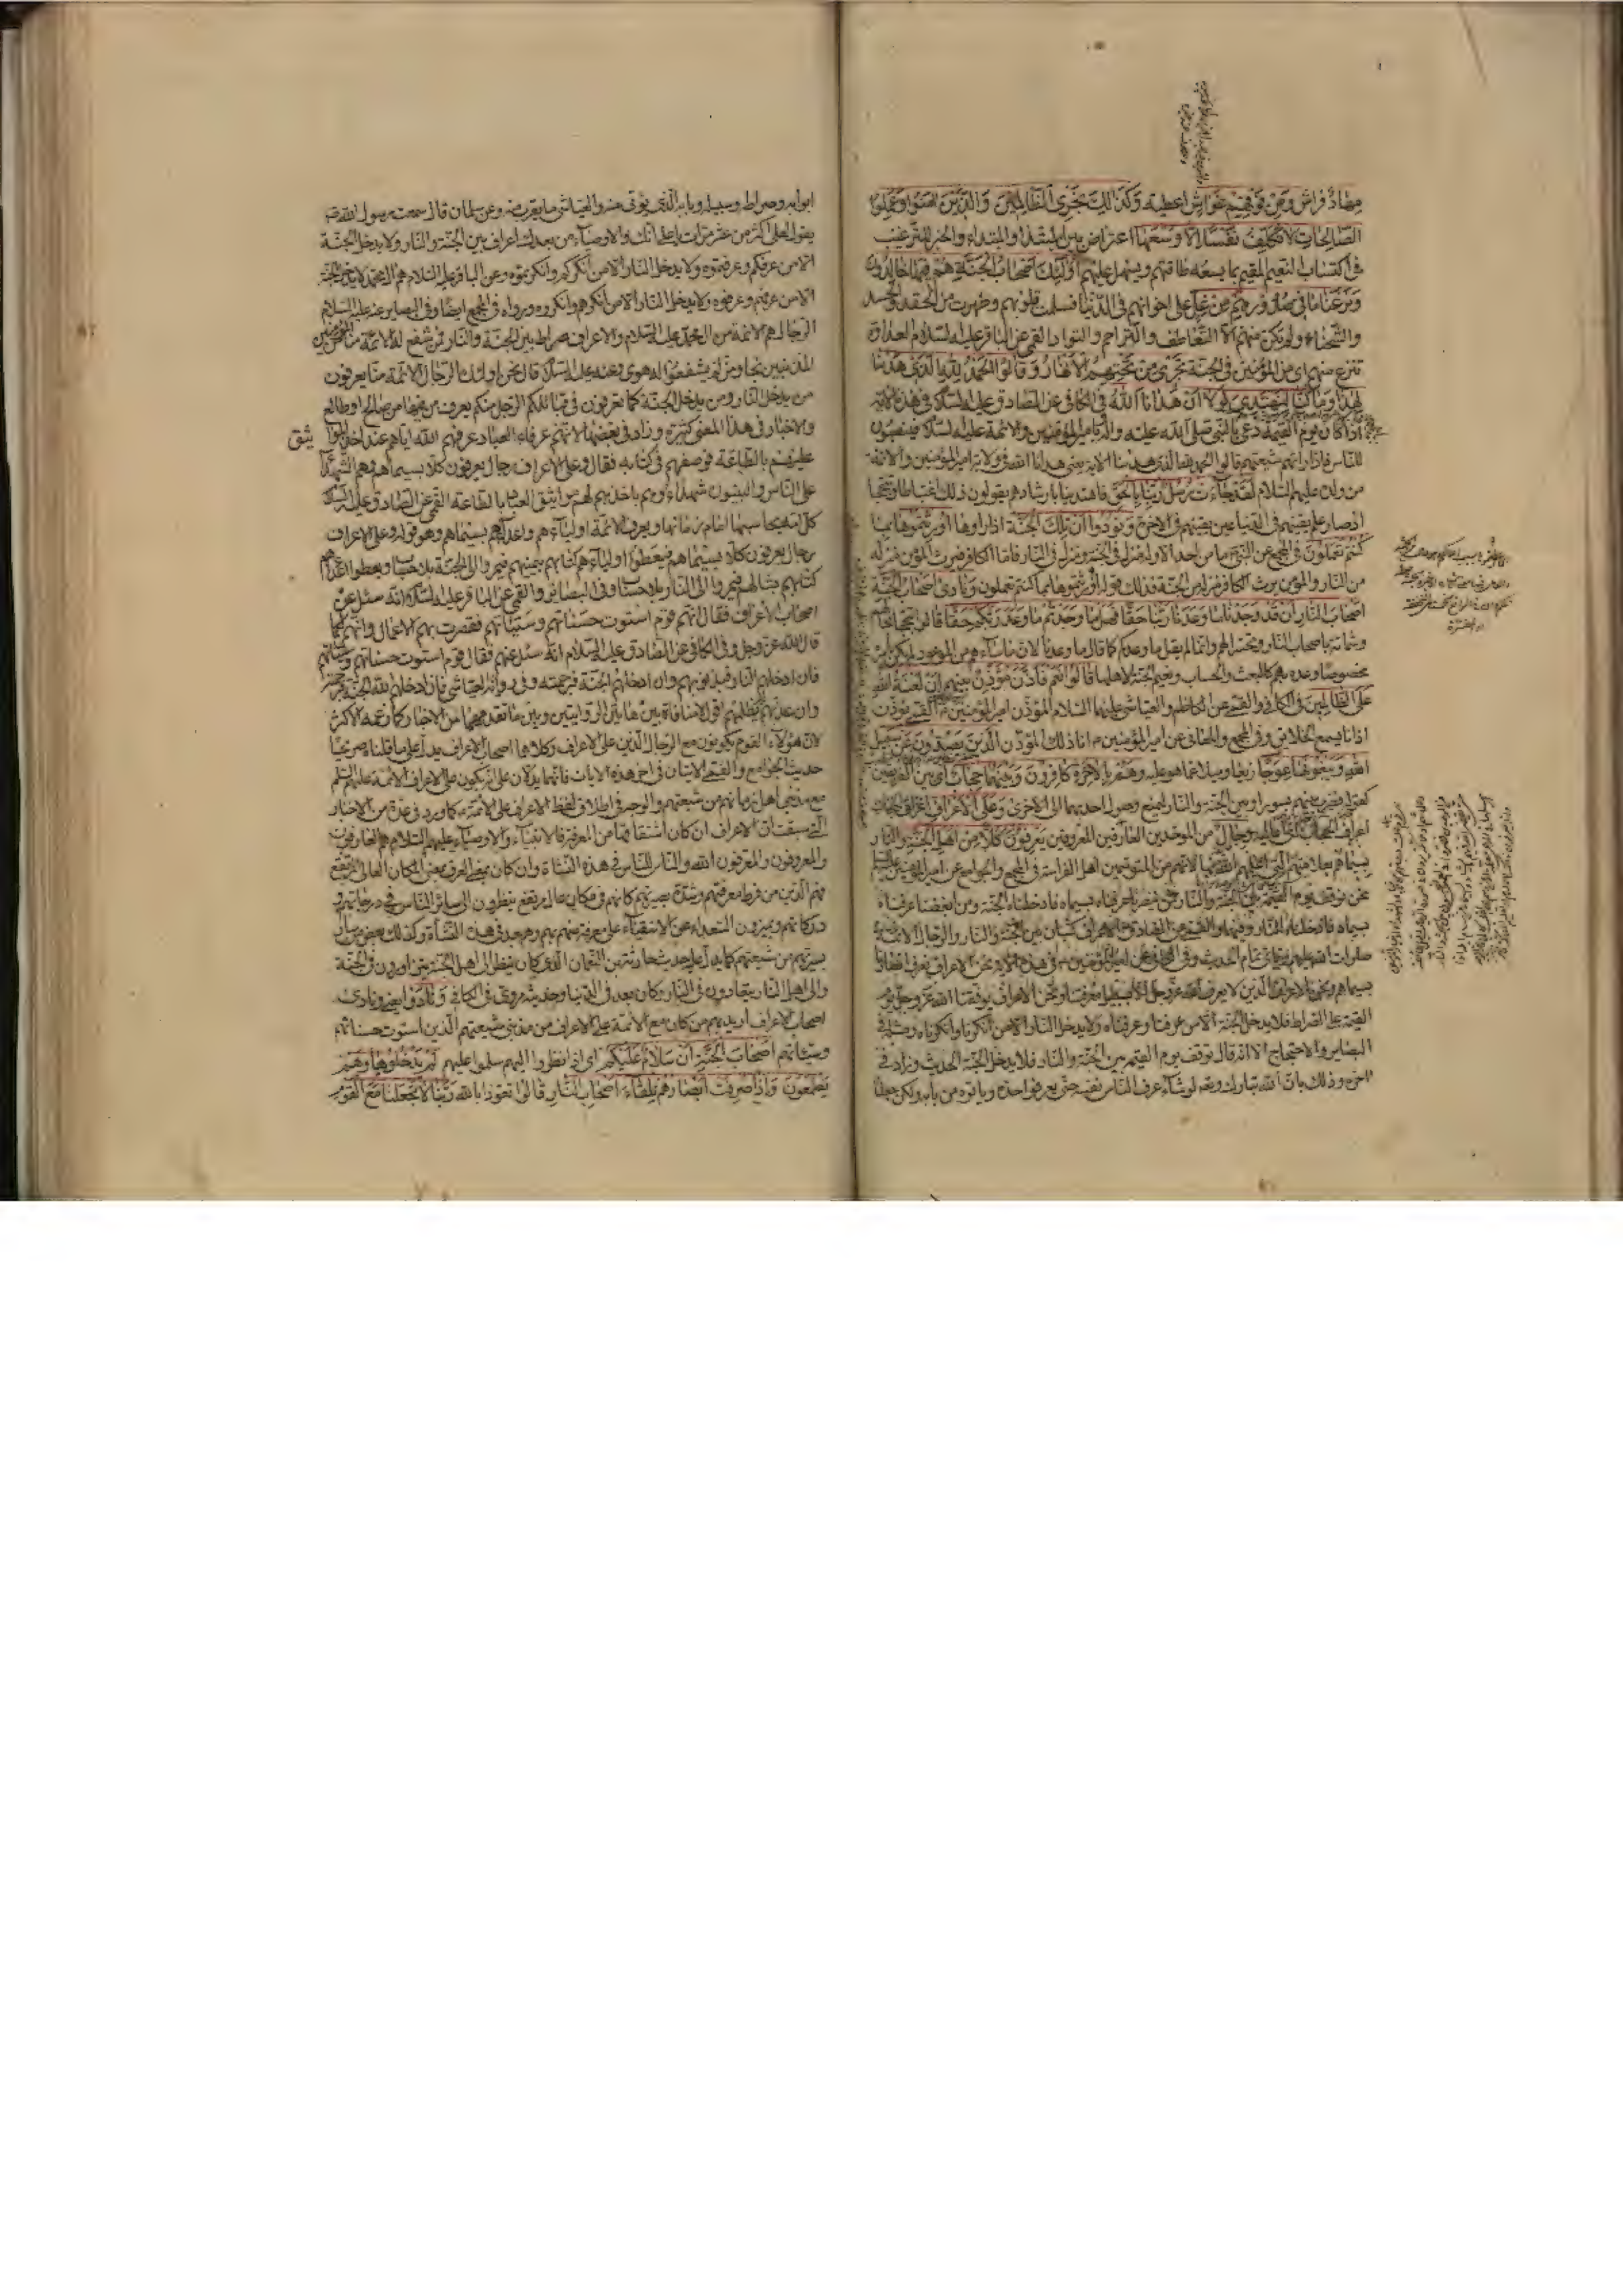 مِهَادٌ فراش وَمِنْ فَوْقِهِمْ غَوَاشٍ اغطية وَكَذَلِكَ نَجْزِي الظَّالِمِينَ وَالَّذِينَ آمَنُوا وَعَمِلُوا
الصَّالِحَاتِ لَا نُكَلِّفُ نَفْسًا إِلَّا وُسْعَهَا اعتراض بين المبتداء والخبر للترغيب
في اكتساب النعيم المقيم بما يسعه طاقتهم ويسهل عليهم أُولَئِكَ أَصْحَابُ الْجَنَّةِ هُمْ فِيهَا خَالِدُونَ
وَنَزَعْنَا مَا فِي صُدُورِهِمْ مِنْ غِلٍّ على اخوانهم في الدنيا فسلمت قلوبهم وطهرت من الحقد والحسد
والشحناء ولم تكن منهم الا التعاطف والتراحم والتواد القمي عن الباقر عليه السلام العداوة
تنزع منهم اي من المؤمنين في الجنة تَجْرِي مِنْ تَحْتِهِمُ الْأَنْهَارُ وَقَالُوا الْحَمْدُ لِلَّهِ الَّذِي هَدَانَا
لِهَذَا وَمَا كُنَّا لِنَهْتَدِيَ لَوْلَا أَنْ هَدَانَا اللَّهُ في الكافي عن الصادق عليه السلام في هذه الاية
اذا كان يوم القيمة دعي بالنبي صلى الله عليه واله وبامير المؤمنين والائمة عليهم السلام فينصبون
للناس فاذا راتهم شيعتهم قالوا الحمد لله الذي هدينا الاية يعني هدانا الله في ولاية امير المؤمنين والائمة
من ولده عليهم السلام لَقَدْ جَاءَتْ رُسُلُ رَبِّنَا بِالْحَقِّ فاهتدينا بارشادهم يقولون ذلك اغتباطا وتبجحا
اذ صار علم يقينهم في الدنيا عين يقينهم في الاخرة وَنُودُوا أَنْ تِلْكُمُ الْجَنَّةُ اذا راوها أُورِثْتُمُوهَا بِمَا
كُنْتُمْ تَعْمَلُونَ في المجمع عن النبي ما من احد الا وله منزل في الجنة ومنزل في النار فاما الكافر فيرث المؤمن منزله
من النار والمؤمن يرث الكافر منزله من الجنة فذلك قوله اورثتموها بما كنتم تعملون وَنَادَى أَصْحَابُ الْجَنَّةِ
أَصْحَابَ النَّارِ أَنْ قَدْ وَجَدْنَا مَا وَعَدَنَا رَبُّنَا حَقًّا فَهَلْ وَجَدْتُمْ مَا وَعَدَ رَبُّكُمْ حَقًّا قالوه تبجحا بحالهم
وشماتة باصحاب النار وتحسيرا لهم وانما لم يقل ما وعدكم كما قال ما وعدنا لان ما ساءهم من الموعود لم يكن باسره
مخصوصا وعده بهم كالبعث والحساب ونعيم الجنة لاهلها قَالُوا نَعَمْ فَأَذَّنَ مُؤَذِّنٌ بَيْنَهُمْ أَنْ لَعْنَةُ اللَّهِ
عَلَى الظَّالِمِينَ في الكافي والقمي عن الكاظم والعياشي عليهما السلام المؤذن امير المؤمنين القمي يؤذن
اذانا يسمع الخلائق وفي المجمع والمعاني عن امير المؤمنين انا ذلك المؤذن الَّذِينَ يَصُدُّونَ عَنْ سَبِيلِ
اللَّهِ وَيَبْغُونَهَا عِوَجًا زيغا وميلا عما هو عليه وَهُمْ بِالْآخِرَةِ كَافِرُونَ وَبَيْنَهُمَا حِجَابٌ اي بين الفريقين
كقوله فضرب بينهم بسور او بين الجنة والنار ليمنع وصول احديهما الى الاخرى وَعَلَى الْأَعْرَافِ اعراف الحجاب
رِجَالٌ من الموحدين العارفين المعروفين يَعْرِفُونَ كُلًّا من اهل الجنة والنار
بِسِيمَاهُمْ بعلامتهم التي اعلمهم الله بها لانهم من المتوسمين اهل الفراسة في المجمع والجوامع عن امير المؤمنين عليه السلام
نحن نوقف يوم القيمة بين الجنة والنار فمن نصرنا عرفناه بسيماه فادخلناه الجنة ومن ابغضنا عرفناه
بسيماه فادخلناه النار والقمي عن الصادق الاعراف كثبان بين الجنة والنار والرجال الائمة
صلوات الله عليهم وياتي تمام الحديث وفي الكافي عن امير المؤمنين في هذه الاية نحن الاعراف نعرف انصارنا
بسيماهم ونحن الاعراف الذين لا يعرف الله عز وجل الا بسبيل معرفتنا ونحن الاعراف يوقفنا الله عز وجل يوم
القيمة على الصراط فلا يدخل الجنة الا من عرفنا وعرفناه ولا يدخل النار الا من انكرنا وانكرناه ومثله في
البصاير والاحتجاج الا انه قال نوقف يوم القيمة بين الجنة والنار فلا يدخل الجنة الحديث وزاد في
اخره وذلك بان الله تبارك وتعالى لو شاء عرف الناس نفسه حتى يعرفوا حده وياتوه من بابه ولكن جعلنا
ابوابه وصراطه وسبيله وبابه الذي يؤتى منه والعياشي ما يقرب منه وعن سلمان قال سمعت رسول الله
يقول لعلي اكثر من عشر مرات يا علي انك والاوصياء من بعدك اعراف بين الجنة والنار ولا يدخل الجنة
الا من عرفكم وعرفتموه ولا يدخل النار الا من انكركم وانكرتموه وعن الباقر عليه السلام هم ال محمد لا يدخل الجنة
الا من عرفهم وعرفوه ولا يدخل النار الا من انكرهم وانكروه ورواه في المجمع ايضا وفي البصاير عنه عليه السلام
الرجال هم الائمة من ال محمد عليهم السلام والاعراف صراط بين الجنة والنار فمن شفع له الائمة منا من المؤمنين
المذنبين نجا ومن لم يشفعوا له هوى وعنه عليه السلام قال نحن اولئك الرجال الائمة منا يعرفون
من يدخل النار ومن يدخل الجنة كما تعرفون في قبائلكم الرجل منكم يعرف من فيها من صالح او طالح
والاخبار في هذا المعنى كثيرة وزاد في بعضها لانهم عرفاء العباد عرفهم الله اياهم عند اخذ المواثيق
عليهم بالطاعة فوصفهم في كتابه فقال وعلى الاعراف رجال يعرفون كلا بسيماهم وهم الشهداء
على الناس والنبيون شهداؤهم باخذهم لهم مواثيق العباد بالطاعة القمي عن الصادق عليه السلام
كل امة يحاسبها امام زمانها ويعرف الائمة اولياءهم واعداءهم بسيماهم وهو قوله وعلى الاعراف
رجال يعرفون كلا بسيماهم فيعطوا اولياءهم كتابهم بيمينهم فيمروا الى الجنة بلا حساب ويعطوا اعداءهم
كتابهم بشمالهم فيمروا الى النار بلا حساب وفي البصائر والقمي عن الباقر عليه السلام انه سئل عن
اصحاب الاعراف فقال انهم قوم استوت حسناتهم وسيئاتهم فقصرت بهم الاعمال وانهم لكما
قال الله عز وجل وفي الكافي عن الصادق عليه السلام انه سئل عنهم فقال قوم استوت حسناتهم وسيئاتهم
فان ادخلهم النار فبذنوبهم وان ادخلهم الجنة فبرحمته وفي رواية العياشي فان ادخلهم الله الجنة فبرحمته
وان عذبهم لم يظلمهم اقول لا منافاة بين هاتين الروايتين وبين ما تقدمهما من الاخبار كما زعمه الاكثرون
لان هؤلاء القوم يكونون مع الرجال الذين على الاعراف وكلاهما اصحاب الاعراف يدل على ما قلناه صريحا
حديث الجوامع والقمي الاتيان في اخر هذه الايات فانهما يدلان على انه يكون على الاعراف الائمة عليهم السلم
مع مذنبي اهل زمانهم من شيعتهم والوجه في اطلاق لفظ الاعراف على الائمة كما ورد في عدة من الاخبار
التي سبقت ان الاعراف ان كان اشتقاقها من المعرفة فالانبياء والاوصياء عليهم السلام هم العارفون
والمعروفون والمعرفون الله والناس للناس في هذه النشاة وان كان من العرف بمعنى المكان العالي المرتفع
فهم الذين من فرط معرفتهم وشدة بصيرتهم كانهم في مكان عال مرتفع ينظرون الى سائر الناس في درجاتهم
ودركاتهم ويميزون السعداء عن الاشقياء على معرفة منهم بهم وهم بعد في هذه النشأة وكذلك بعض من سار
بسيرتهم من شيعتهم كما يدل عليه حديث حارثة بن النعمان الذي كان ينظر الى اهل الجنة يتزاورون في الجنة
والى اهل النار يتعاوون في النار وكان بعد في الدنيا وحديثه مروي في الكافي وَنَادَوْا يعني ونادى
اصحاب الاعراف اريد بهم من كان مع الائمة على الاعراف من مذنبي شيعتهم الذين استوت حسناتهم
وسيئاتهم أَصْحَابَ الْجَنَّةِ أَنْ سَلَامٌ عَلَيْكُمْ اي اذا نظروا اليهم سلموا عليهم لَمْ يَدْخُلُوهَا وَهُمْ
يَطْمَعُونَ وَإِذَا صُرِفَتْ أَبْصَارُهُمْ تِلْقَاءَ أَصْحَابِ النَّارِ قَالُوا نعوذ بالله رَبَّنَا لَا تَجْعَلْنَا مَعَ الْقَوْمِ